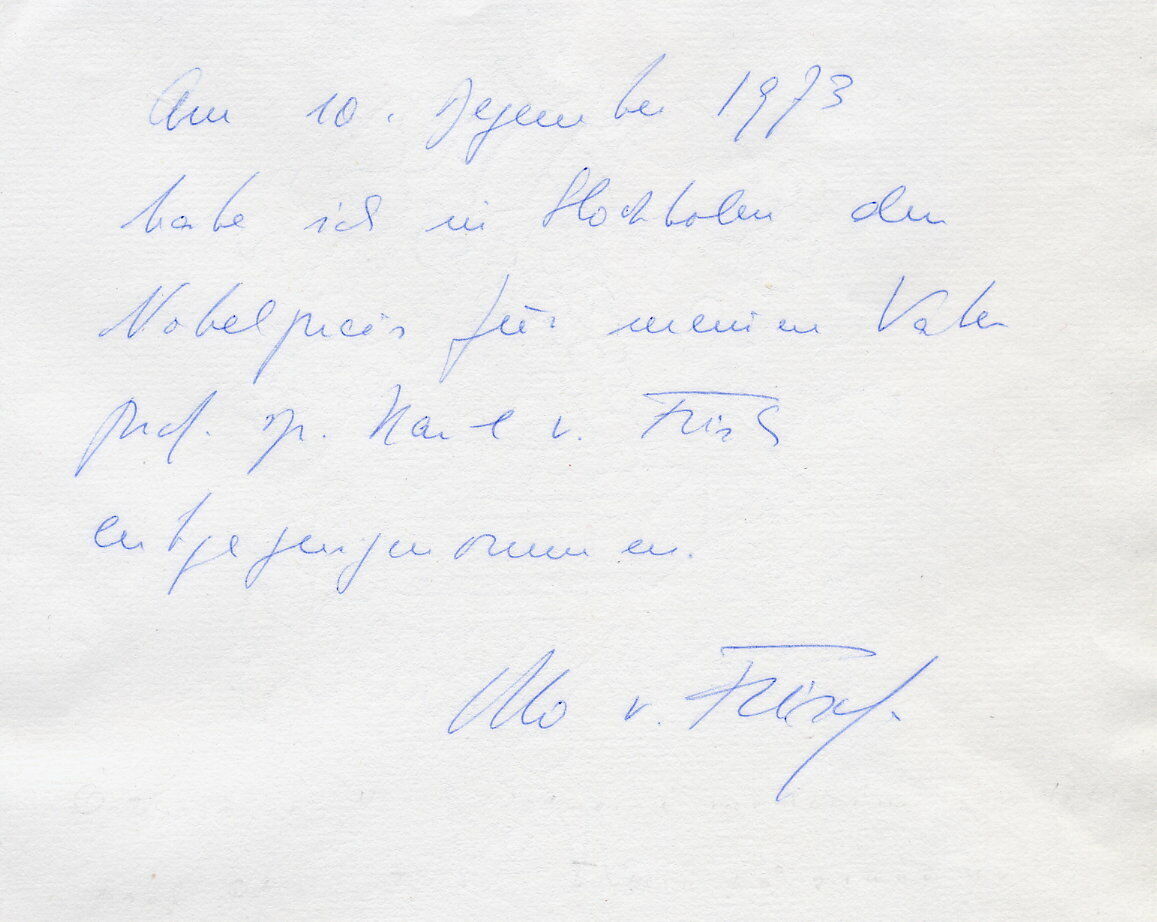 Am 10. Dezember 1973
habe ich in Stockholm den
Nobelpreis für meinen Vater
Prof. Dr. Karl v. Frisch
entgegengenommen.
Otto v. Frisch